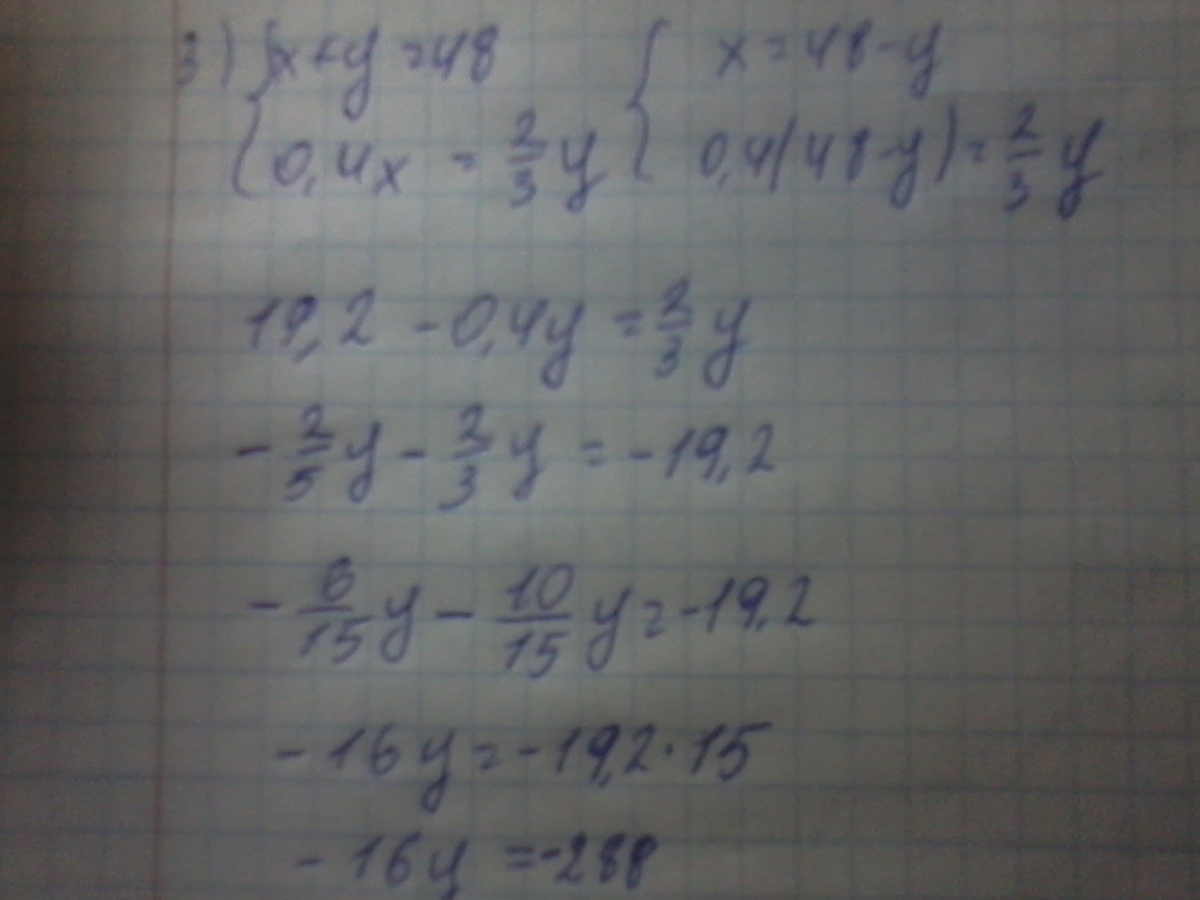 3) {x+y=48 { x=48-y
{0,4x = 2/3 y { 0,4(48-y)=2/3 y
19,2 -0,4y = 2/3 y
- 2/5 y - 2/3 y = -19,2
- 6/15 y - 10/15 y = -19,2
-16y = -19,2·15
-16y = -288